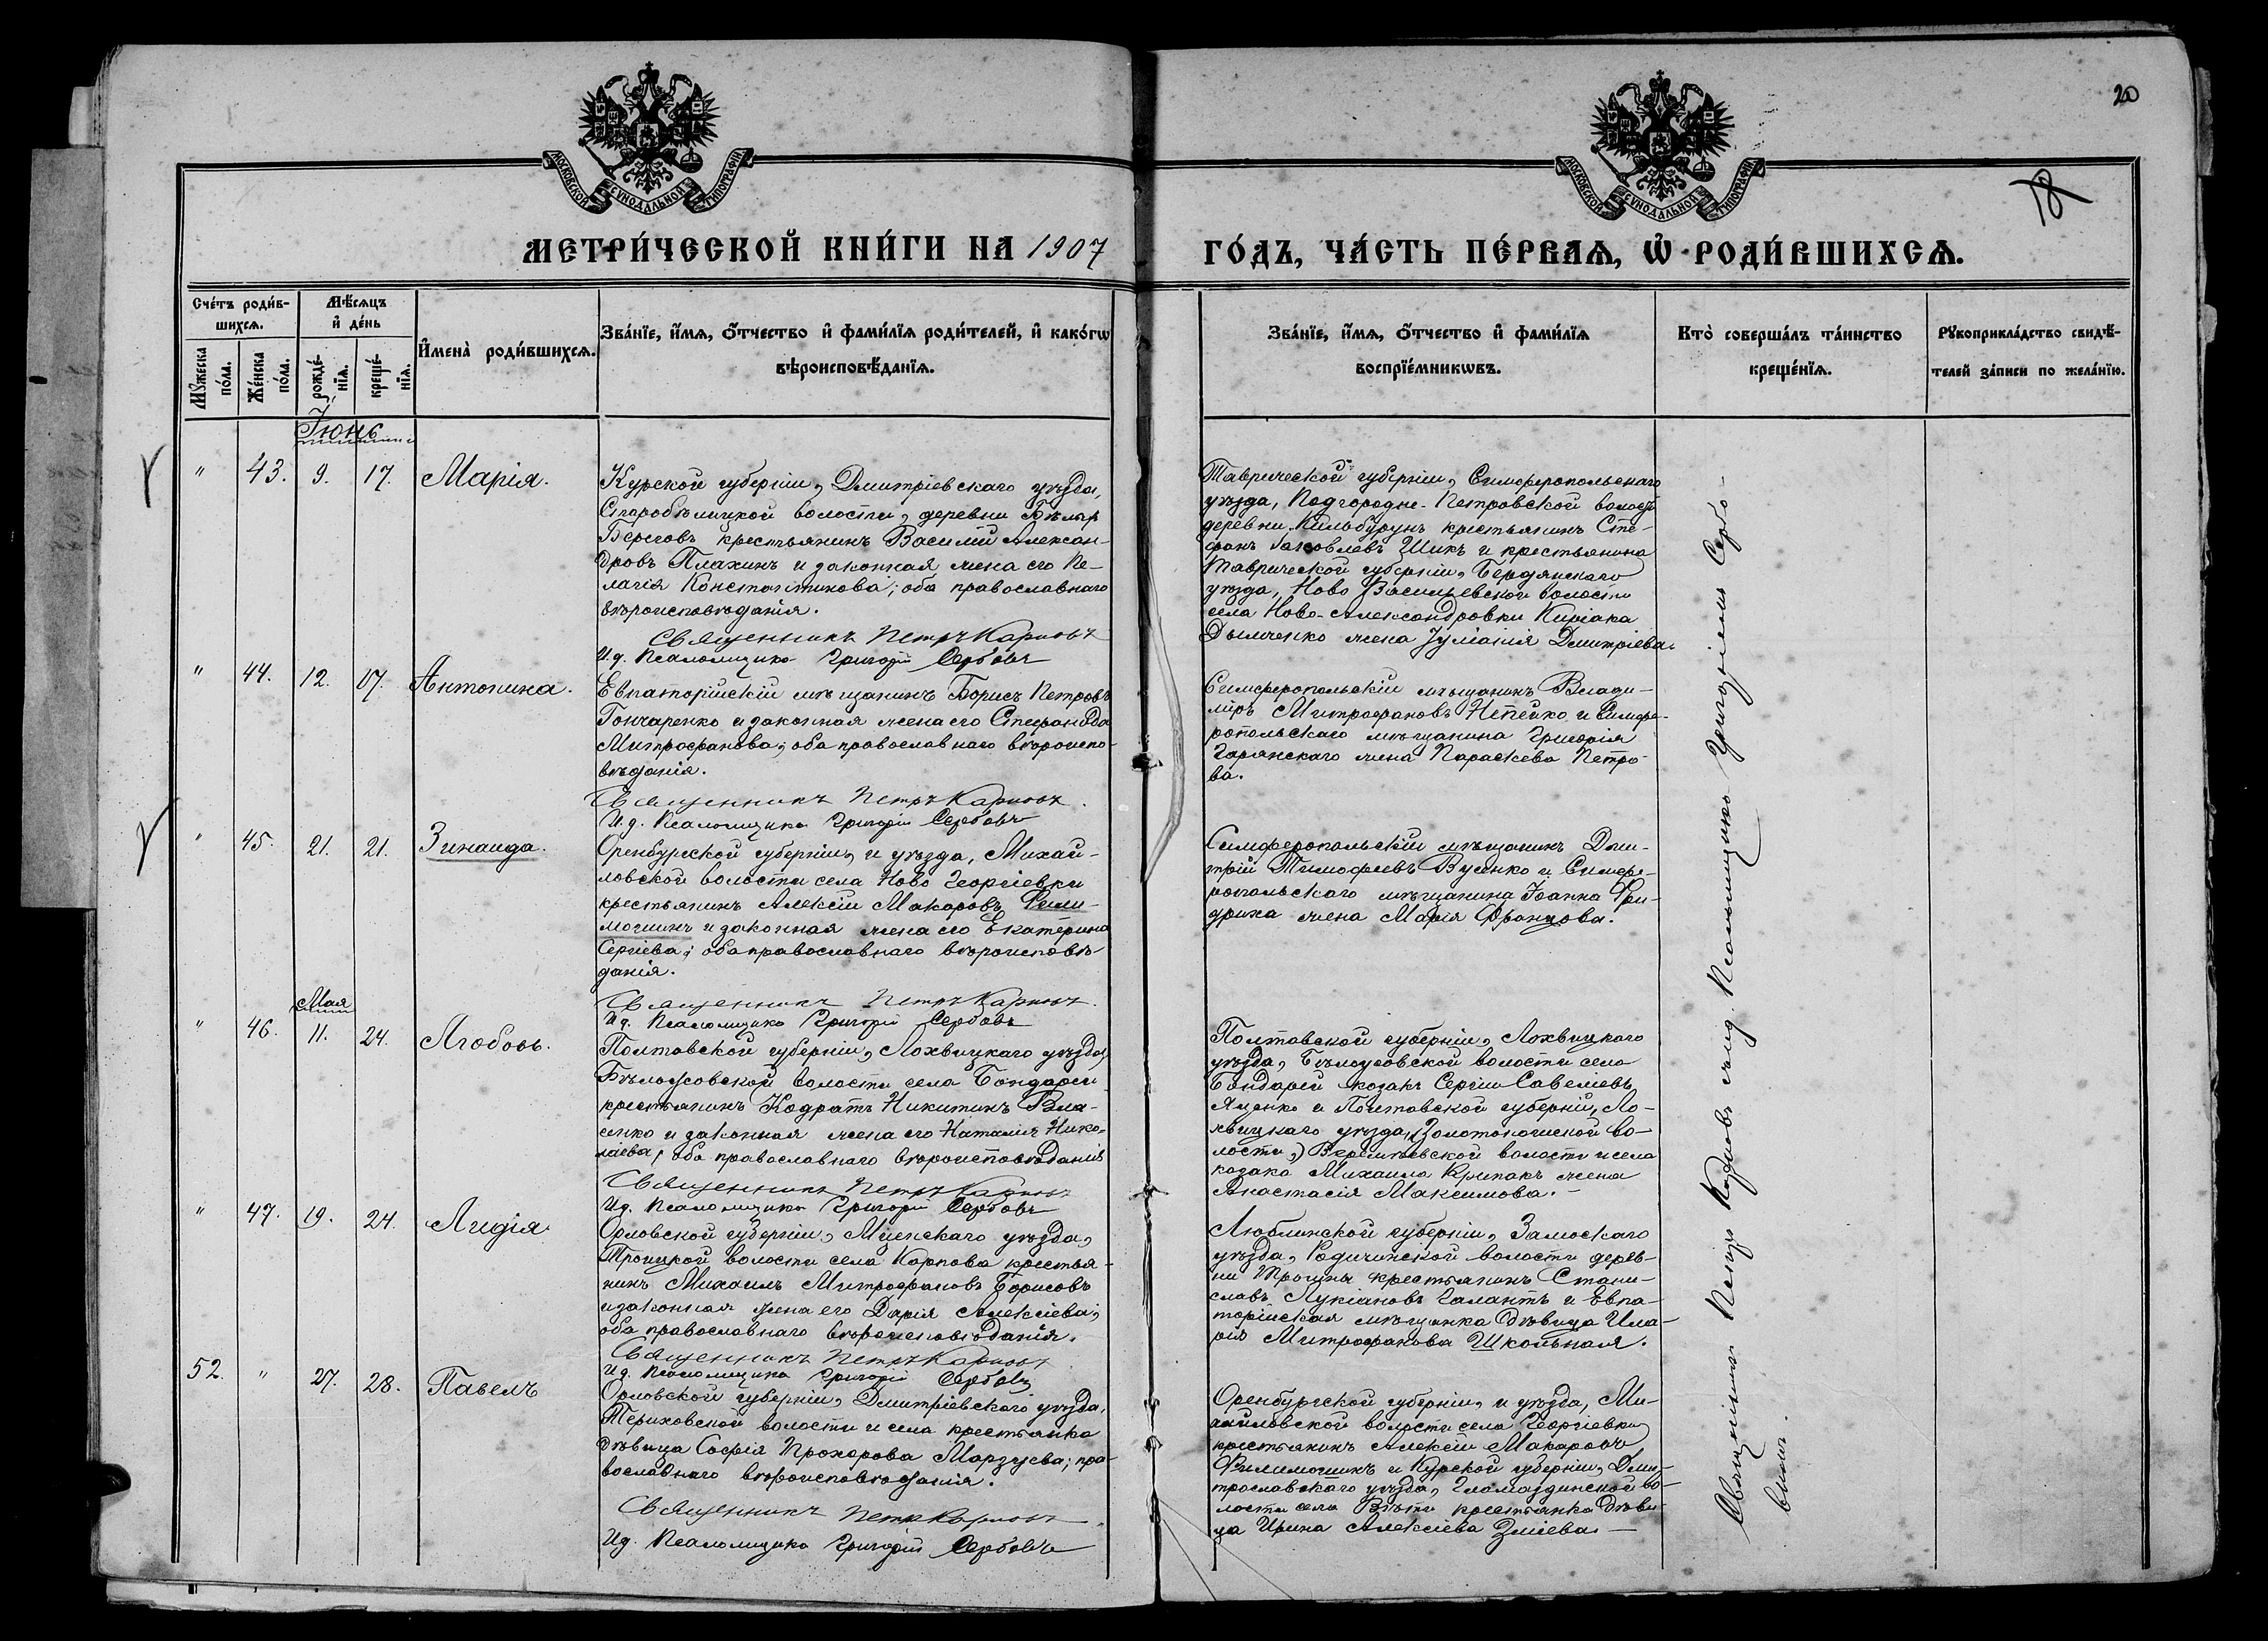 20
18
МОСКОВСКОЙ СѴНОДАЛЬНОЙ ТИПОГРАФІИ
МОСКОВСКОЙ СѴНОДАЛЬНОЙ ТИПОГРАФІИ
МЕТРИ́ЧЕСКОЙ КНИ́ГИ НА 1907 ГО́ДЪ, ЧА́СТЬ ПЕ́РВАѦ, Ѡ҆ РОДИ́ВШИХСѦ.
Сче́тъ роди́в-
шихсѧ.
Мꙋ́жеска
по́ла.
Же́нска
по́ла.
Мѣ́сѧцъ
и҆ де́нь
рожде́-
нїѧ.
креще́-
нїѧ.
И҆мена̀ роди́вшихсѧ.
Зва́нїе, и҆́мѧ, ѻ҆́тчество и҆ фами́лїѧ роди́телей, и҆ како́гѡ
вѣроисповѣ́данїѧ.
Зва́нїе, и҆́мѧ, ѻ҆́тчество и҆ фами́лїѧ
воспрїе́мникѡвъ.
Кто̀ соверша́лъ та́инство
креще́нїѧ.
Рꙋкоприкла́дство свидѣ́-
телей за́писи по жела́нїю.
Іюнь
" 43. 9. 17. Марія.
Курской губерніи, Дмитріевскаго уѣзда,
Старобѣлицкой волости, деревни Бѣлыхъ
Береговъ крестьянинъ Василій Алексан-
дровъ Плахинъ и законная жена его Пе-
лагія Константинова; оба православнаго
вѣроисповѣданія.
Священникъ Петръ Карповъ
И.д. Псаломщика Григорій Сербовъ
Таврической губерніи, Симферопольскаго
уѣзда, Подгородне-Петровской волости
деревни Кильбурунъ крестьянинъ Сте-
фанъ Яковлевъ Шикъ и крестьянина
Таврической губерніи, Бердянскаго
уѣзда, Ново Васильевской волости
села Ново-Александровки Киріака
Дымченко жена Іуліанія Дмитріева.
" 44. 12. 07. Антонина.
Евпаторійскій мѣщанинъ Борисъ Петровъ
Гончаренко и законная жена его Стефанида
Митрофанова; оба православнаго вѣроиспо-
вѣданія.
Священникъ Петръ Карповъ.
И.д. Псаломщика Григорій Сербовъ
Симферопольскій мѣщанинъ Влади-
міръ Митрофановъ Непейко и Симфе-
ропольскаго мѣщанина Григорія
Гарянскаго жена Параскева Петро-
ва.
" 45. 21. 21. Зинаида.
Оренбургской губерніи, и уѣзда, Михай-
ловской волости села Ново Георгіевки
крестьянинъ Алексій Макаровъ Фили-
мошинъ и законная жена его Екатерина
Сергіева; оба православнаго вѣроисповѣ-
данія.
Священникъ Петръ Карповъ.
И.д. Псаломщика Григорій Сербовъ
Симферопольскій мѣщанинъ Дми-
трій Тимофеевъ Вуенко и Симфе-
ропольскаго мѣщанина Іоанна Фри-
дриха жена Марія Францова.
Мая
" 46. 11. 24. Любовь.
Полтавской губерніи, Лохвицкаго уѣзда,
Бѣлоусовской волости села Бондарей
крестьянинъ Кодратъ Никитинъ Вла-
сенко и законная жена его Наталія Нико-
лаева; оба православнаго вѣроисповѣданія
Священникъ Петръ Карповъ
И.д. Псаломщика Григорій Сербовъ
Полтавской губерніи, Лохвицкаго
уѣзда, Бѣлоусовской волости села
Бондарей козакъ Сергій Савеліевъ
Яценко и Полтавской губерніи, Ло-
хвицкаго уѣзда, (Золотоношской во-
лости,) Веремѣевской волости и села
козака Михаила Крипакъ жена
Анастасія Максимова.-
" 47. 19. 24. Лидія
Орловской губерніи, Мценскаго уѣзда,
Троицкой волости села Карпова крестья-
нинъ Михаилъ Митрофановъ Борисовъ
и законная жена его Дарія Алексіева;
оба православнаго вѣроисповѣданія.
Священникъ Петръ Карповъ
И.д. Псаломщика Григорій Сербовъ
Люблинской губерніи, Замоскаго
уѣзда, Радичинской волости дерев-
ни Трощны крестьянинъ Стани-
славъ Лукіановъ Галантъ и Евпа-
торійская мѣщанка дѣвица Ила-
рія Митрофанова Школьная.
52. " 27. 28. Павелъ
Орловской губерніи, Дмитріевскаго уѣзда,
Териховской волости и села крестьянка
дѣвица Софія Прохорова Марзуева; пра-
вославнаго вѣроисповѣданія.
Священникъ Петръ Карповъ.
И.д. Псаломщика Григорій Сербовъ
Оренбургской губерніи, и уѣзда, Ми-
хайловской волости села Георгіевки
крестьянинъ Алексій Макаровъ
Филимошинъ и Курской губерніи, Дми-
трославскаго уѣзда, Гламаздинской во-
лости села крестьянка дѣви-
ца Ирина Алексіева Зміева.-
Священникъ Петръ Карповъ съ и.д. Псаломщика Григоріемъ Сербо-
вымъ.